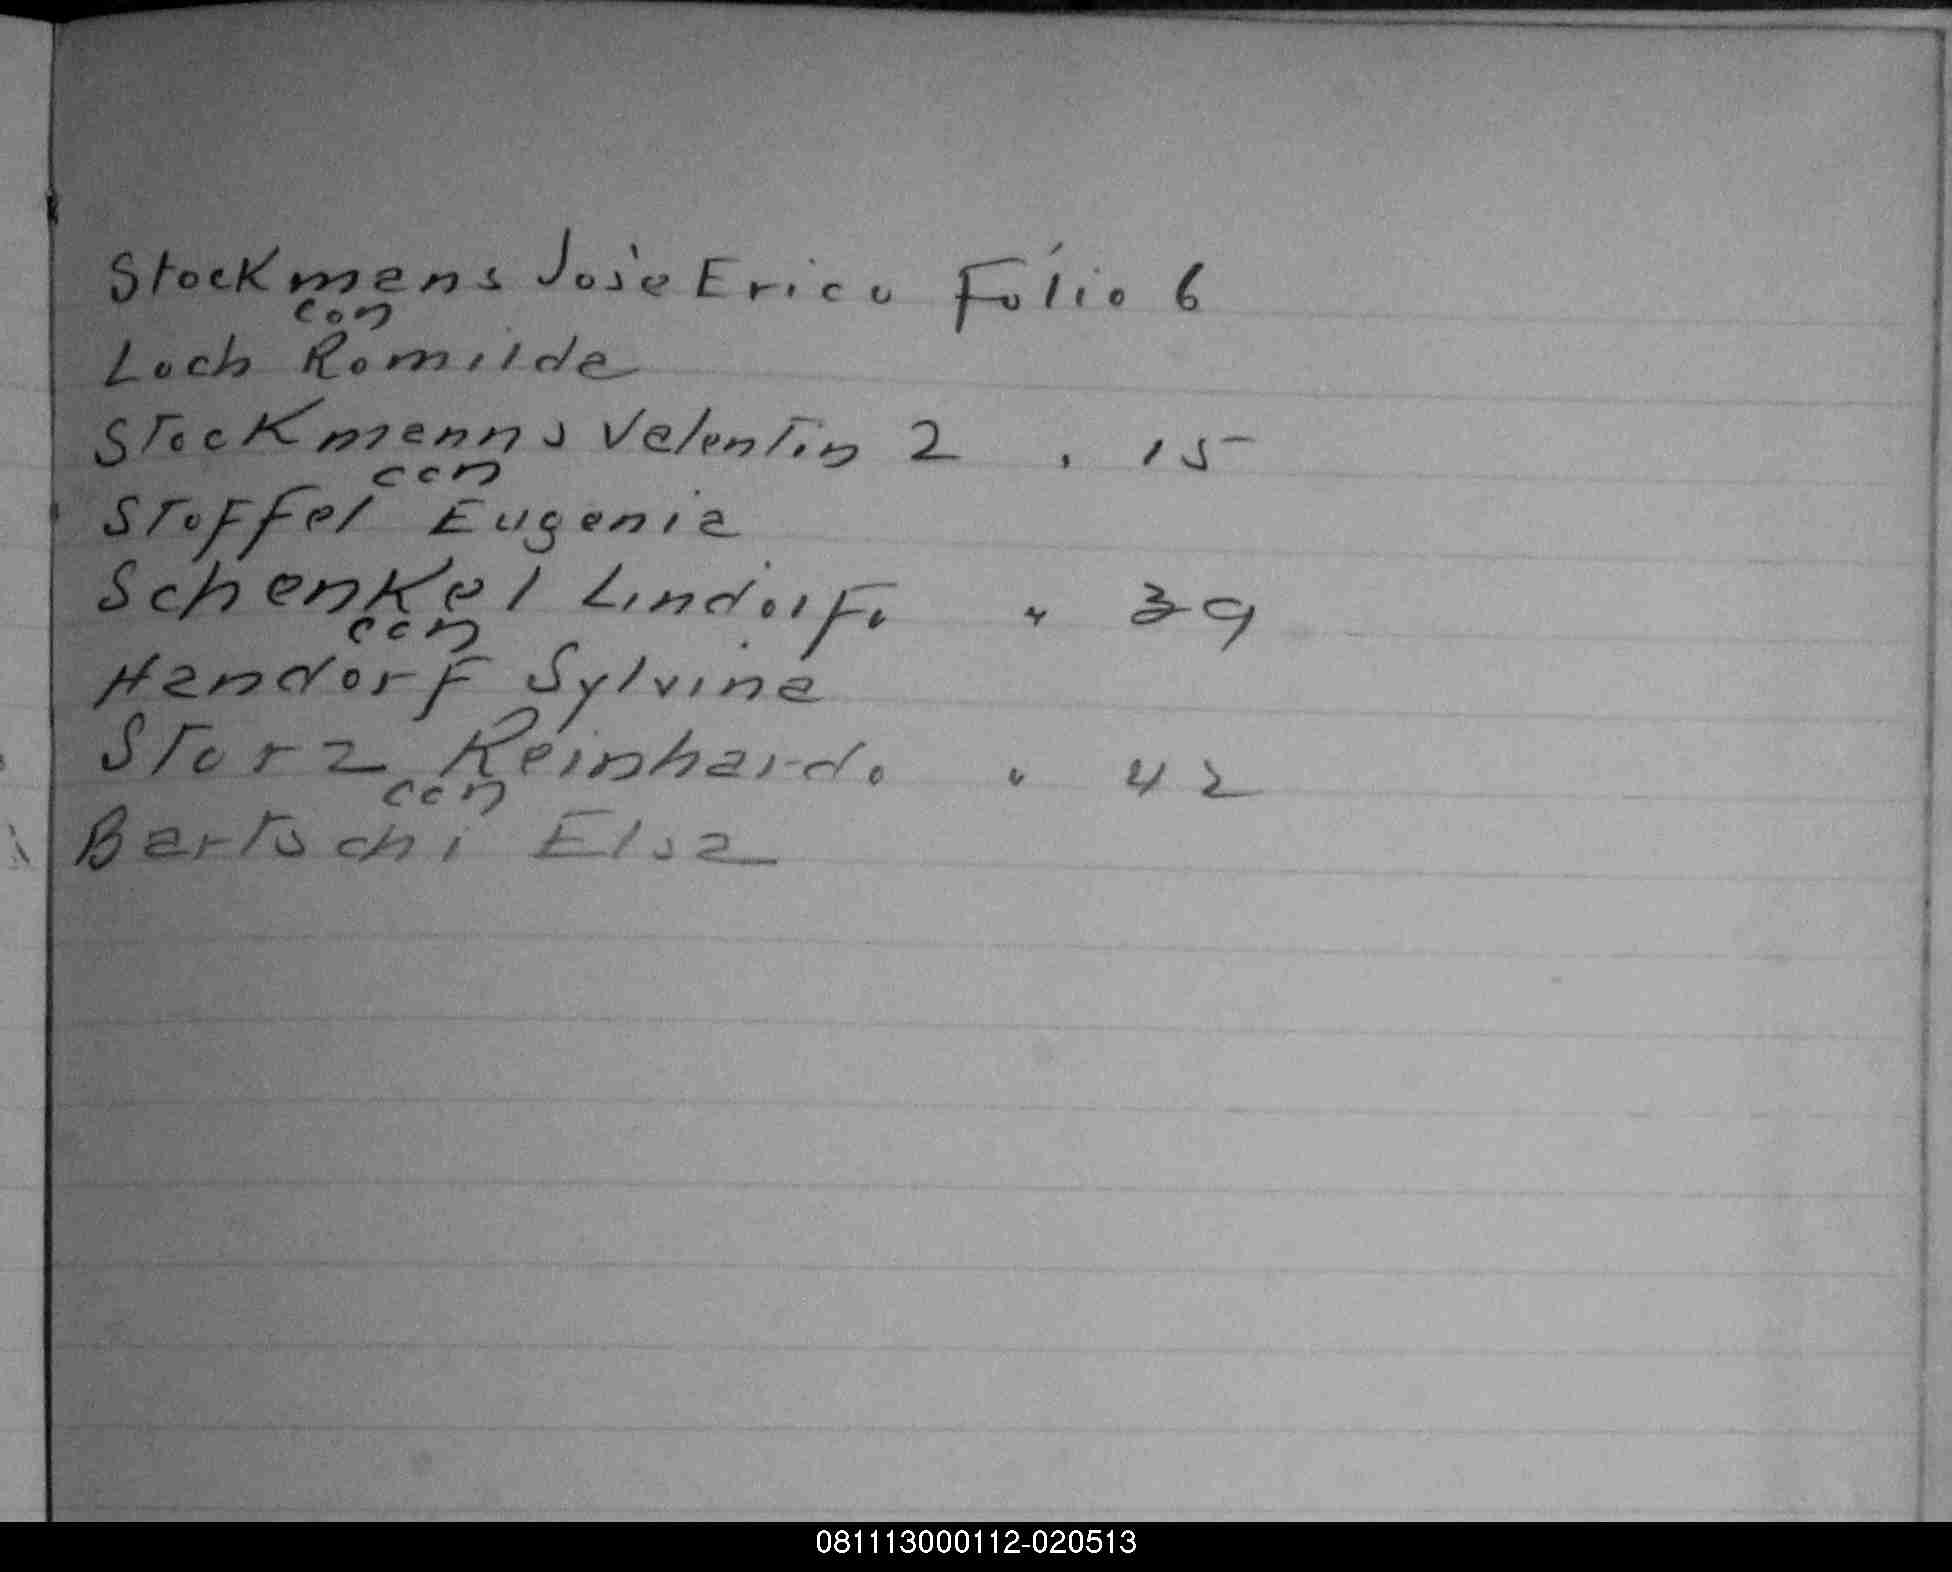 Stockmans José Erico Fólio 6
con
Loch Romilda
Stockmanns Valentin 2 . 15
con
Stoffel Eugenia
Schenkel Lindorfo " 39
con
Handorf Sylvina
Storz Reinhardo " 42
con
Bartschi Elsa
081113000112-020513